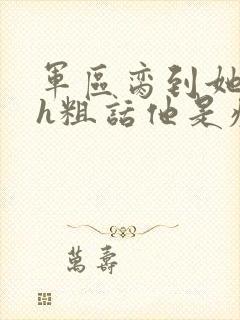 軍區离到她
h粗話他是
萬壽